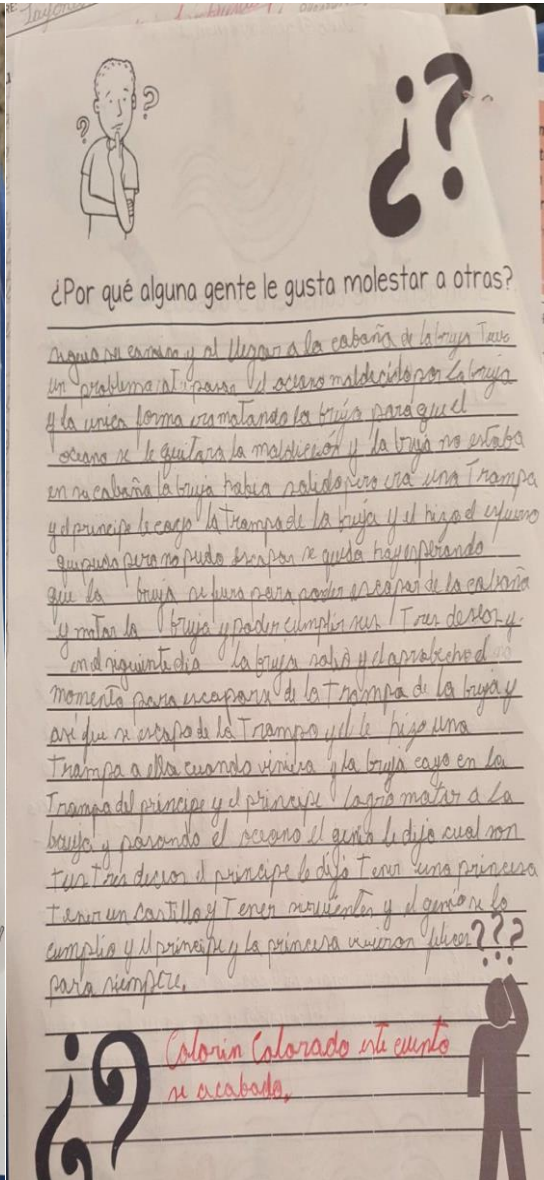 Tayones
¿?
? ?
¿Por qué alguna gente le gusta molestar a otras?
siguio su camino y al llegar a la cabaña de la bruja Tuvo
un problema al pasar el oceano maldecido por la bruja
y la unica forma era matando la bruja para que el
oceano se le quitara la maldicion y la bruja no estaba
en su cabaña la bruja habia salido pero era una Trampa
y el principe le cayo la Trampa de la bruja y el hizo el esfuerso
que pudo pero no pudo escapar se queda hay esperando
que la bruja se fuera para poder escapar de la cabaña
y matar la bruja y poder cumplir sus Tres deseos y
en el siguiente dia la bruja salio y el aprobecho el
momento para escaparse de la Trampa de la bruja y
asi que se escapo de la Trampa y el le hizo una
Trampa a ella cuando viniera y la bruja cayo en la
Trampa del principe y el principe logro matar a la
bruja y pasando el oceano el genio le dijo cual son
tus Tres deseos el principe le dijo Tener una princesa
Tener un Castillo y Tener sirvientes y el genio se lo
cumplio y el principe y la princesa vivieron felices
para siempre.
???
Colorin Colorado este cuento
se acabado.
¿?